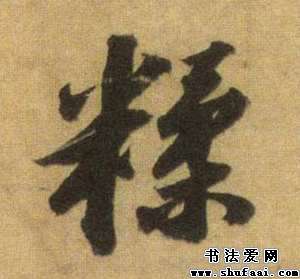 糅
书法爱网
www.shufaai.com